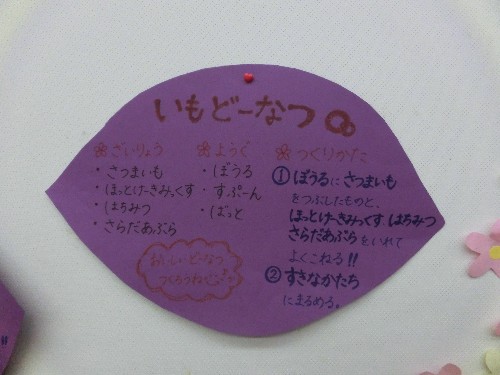 いもどーなつ
ざいりょう
・さつまいも
・ほっとけーきみっくす
・はちみつ
・さらだあぶら
ようぐ
・ぼうる
・すぷーん
・ばっと
つくりかた
① ぼうるに さつまいも
をつぶしたものと、
ほっとけーきみっくす はちみつ
さらだあぶら をいれて
よくこねる!!
② すきなかたち
にまるめる。
おいしいどーなつ
つくろうね